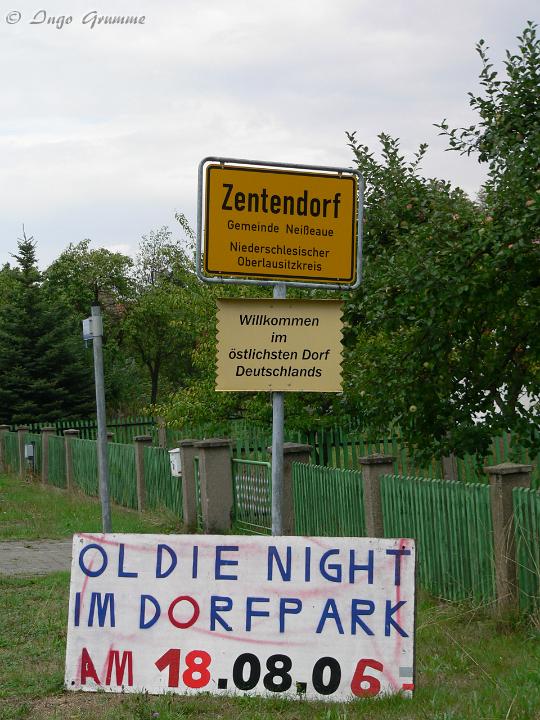 © Ingo Grumme
Zentendorf
Gemeinde Neißeaue
Niederschlesischer
Oberlausitzkreis
Willkommen
im
östlichsten Dorf
Deutschlands
OLDIE NIGHT
IM DORFPARK
AM 18.08.06